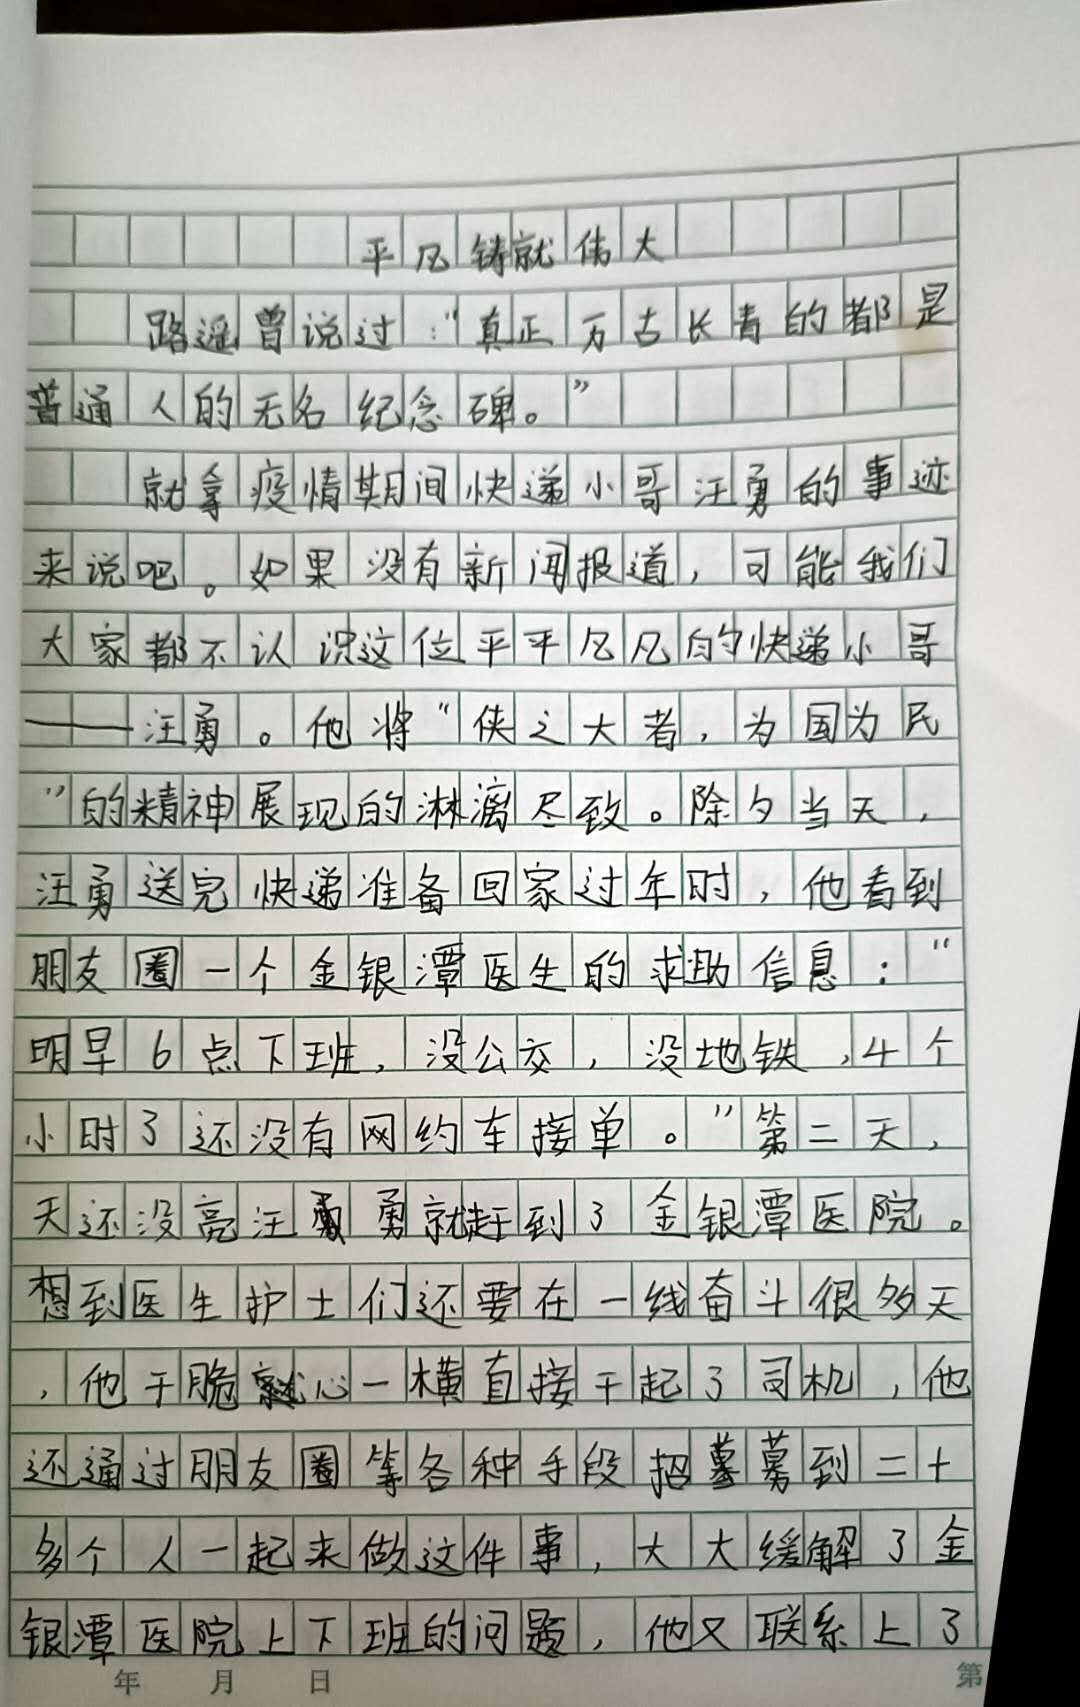 平凡铸就伟大
路遥曾说过:"真正万古长青的都是
普通人的无名纪念碑。"
就拿疫情期间快递小哥汪勇的事迹
来说吧。如果没有新闻报道,可能我们
大家都不认识这位平平凡凡的快递小哥
——汪勇。他将"侠之大者,为国为民
"的精神展现的淋漓尽致。除夕当天,
汪勇送完快递准备回家过年时,他看到
朋友圈一个金银潭医生的求助信息:"
明早6点下班,没公交,没地铁,4个
小时了还没有网约车接单。"第二天,
天还没亮汪勇就赶到了金银潭医院。
想到医生护士们还要在一线奋斗很多天
,他干脆就心一横直接干起了司机,他
还通过朋友圈等各种手段招募到二十
多个人一起来做这件事,大大缓解了金
银潭医院上下班的问题,他又联系上了
年 月 日 第